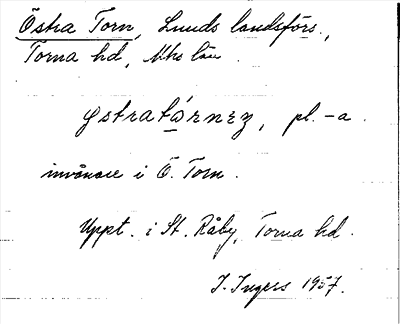 Östra Torn, Lunds landsförs.,
Torna hd, Mhs län.
pl. -a.
invånare i Ö. Torn.
Uppt. i St. Råby, Torna hd.
I. Ingers 1957.